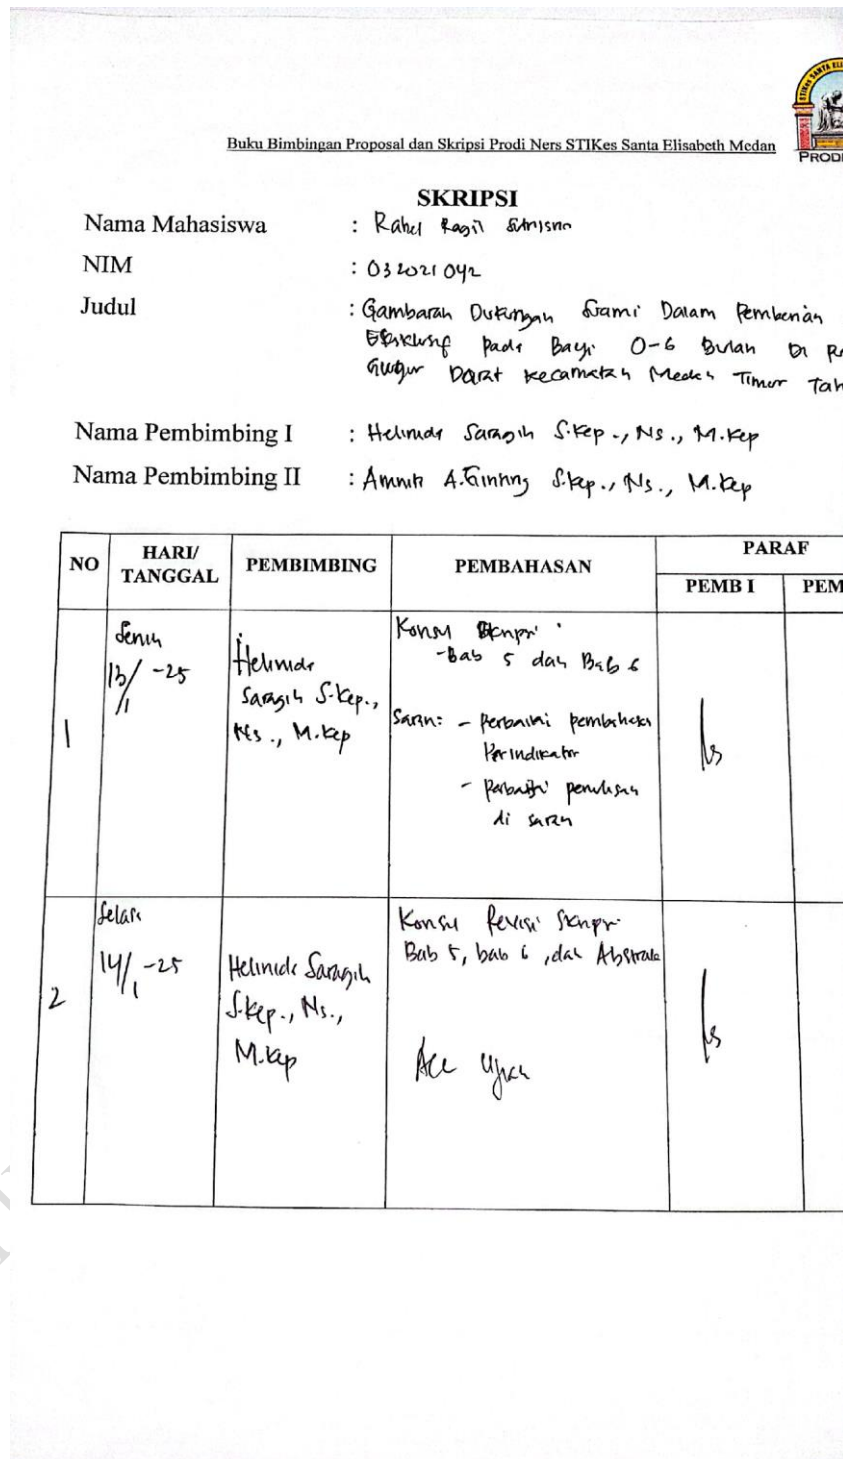 STIKes SANTA ELI
PRODI
Buku Bimbingan Proposal dan Skripsi Prodi Ners STIKes Santa Elisabeth Medan
SKRIPSI
Nama Mahasiswa : Rahel Ragil Sutrisno
NIM : 032021042
Judul : Gambaran Dukungan Suami Dalam Pemberian
Eksklusif Pada Bayi 0-6 Bulan Di
Gugur Darat Kecamatan Medan Timur Tah
Nama Pembimbing I : Helinida Saragih S.Kep., Ns., M.Kep
Nama Pembimbing II : Amnita A.Ginting S.Kep., Ns., M.Kep
NO HARI/ TANGGAL PEMBIMBING PEMBAHASAN PARAF
PEMB I PEM
1 Senin
13/1 -25
Helinida
Saragih S.Kep.,
Ns., M.Kep
Konsul Skripsi
-Bab 5 dan Bab 6
Saran: - Perbaiki pembahasan
Perindikator
- Perbaiki penulisan
di saran
2 Selasa
14/1 -25
Helinida Saragih
S.Kep., Ns.,
M.Kep
Konsul Revisi Skripsi
Bab 5, bab 6, dan Abstrak
Acc Ujian